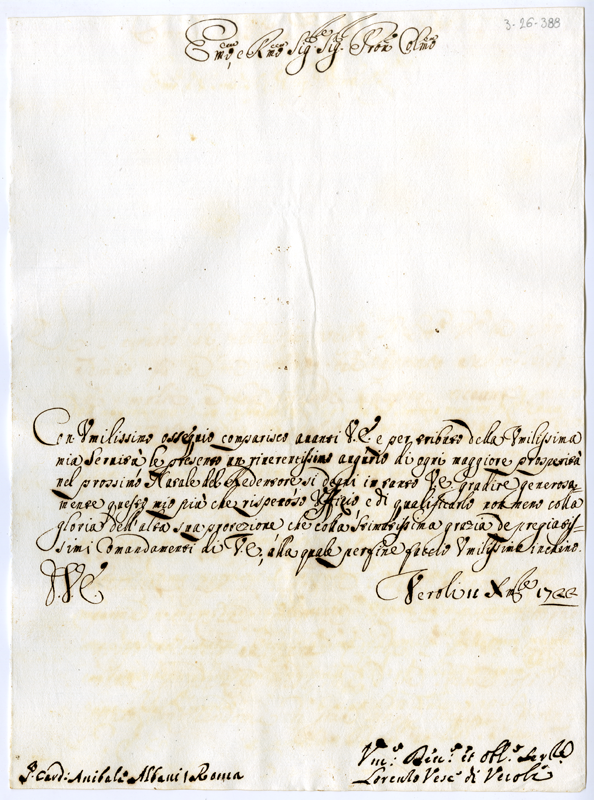 3-26-388
Emo, e Rmo Sigre Sigr. Pron Colmo
Con Umilissimo ossequio comparisco avanti V.E. e per tributo della Umilissima
mia Servitù le presento un riverentissimo augurio di ogni maggiore prosperità
nel prossimo Natale del Redentore si degni in tanto V.E. gradire generosa-
mente questo mio più che rispettoso Uffizio, e di qualificarlo non meno colla
gloria dell'alta sua protezione che colla stimatissima grazia de pregiatis-
simi Comandamenti di V.E. alla quale per fine fò Umilissimo inchino.
D.V.E.
Veroli 11 Xmbre 1722
Sr. Card: Anibale Albani, Roma
Umo. et Obbo.
Lorenzo Vesco di Veroli